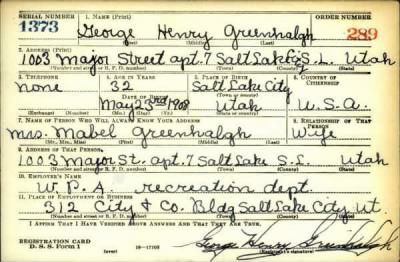 SERIAL NUMBER 1. NAME (Print) ORDER NUMBER
1373 George Henry Greenhalgh 289
(First) (Middle) (Last)
2. ADDRESS (Print)
1003 Major Street apt. 7 Salt Lake S. L. Utah
(Number and street or R. F. D. number) (Town) (County) (State)
3. TELEPHONE 4. AGE IN YEARS 5. PLACE OF BIRTH 6. COUNTRY OF CITIZENSHIP
none 32 Salt Lake City
DATE OF BIRTH
May 23rd 1908 Utah U.S.A.
7. NAME OF PERSON WHO WILL ALWAYS KNOW YOUR ADDRESS 8. RELATIONSHIP OF THAT PERSON
Mrs. Mabel Greenhalgh Wife
(Mr., Mrs., Miss) (First) (Middle) (Last)
9. ADDRESS OF THAT PERSON
1003 Major St. apt. 7 Salt Lake S.L. Utah
(Number and street or R. F. D. number) (Town) (County) (State)
10. EMPLOYER'S NAME
W.P.A. recreation dept.
11. PLACE OF EMPLOYMENT OR BUSINESS
312 City & Co. Bldg Salt Lake City Ut.
(Number and street or R. F. D. number) (Town) (County) (State)
I AFFIRM THAT I HAVE VERIFIED ABOVE ANSWERS AND THAT THEY ARE TRUE.
REGISTRATION CARD
D. S. S. Form 1 George Henry Greenhalgh
(Registrant's signature)